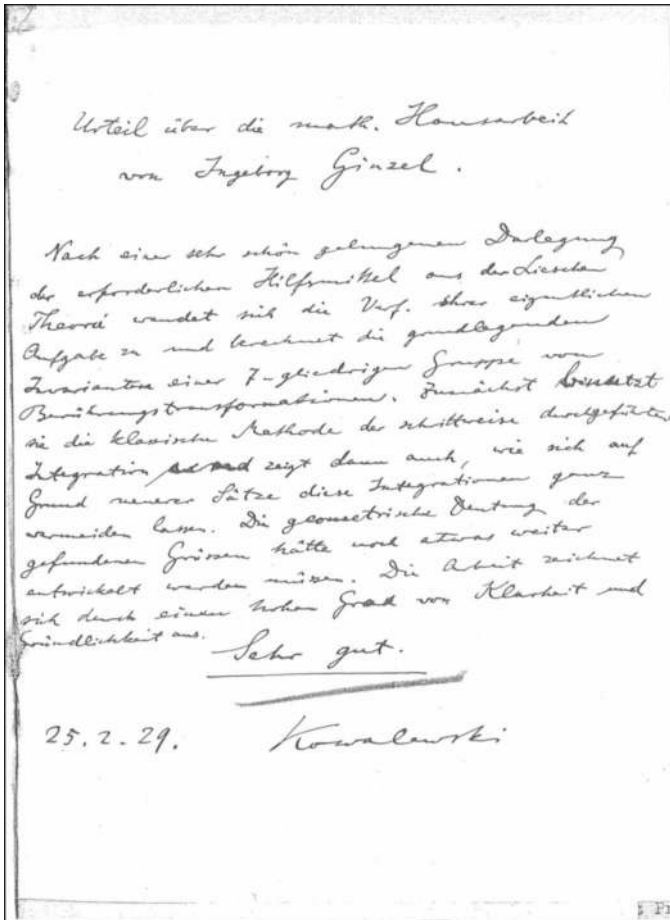 Urteil über die math. Hausarbeit
von Ingeborg Ginzel.
Nach einer sehr schön gelungenen Darlegung
der erforderlichen Hilfsmittel aus der Lieschen
Theorie wendet sich die Verf. ihrer eigentlichen
Aufgabe zu und berechnet die grundlegenden
Invarianten einer 7-gliedrigen Gruppe von
Berührungstransformationen. Zunächst benutzt
sie die klassische Methode der schrittweise durchgeführten
Integration und zeigt dann auch, wie sich auf
Grund neuerer Sätze diese Integrationen ganz
vermeiden lassen. Die geometrische Deutung der
gefundenen Grössen hätte noch etwas weiter
entwickelt werden müssen. Die Arbeit zeichnet
sich durch einen hohen Grad von Klarheit und
Gründlichkeit aus.
Sehr gut.
25.2.29. Kowalewski